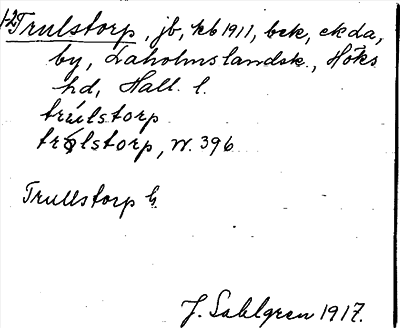 1-2 Trulstorp, jb, kb 1911, bek, ekda,
by, Laholms landsk., Höks
hd, Hall. l.
trúlstorp
trólstorp, N. 396
Trullstorp G
J. Sahlgren 1917.